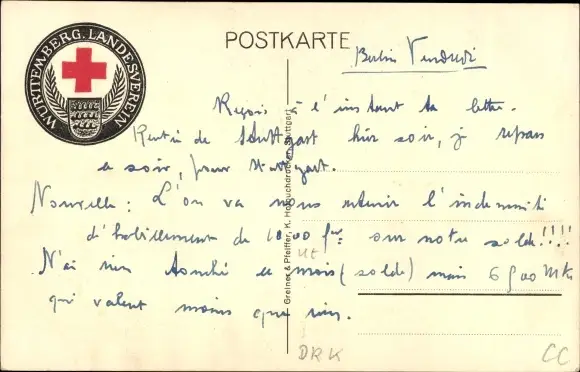 WÜRTTEMBERG. LANDESVEREIN
POSTKARTE
Berlin Vendredi
Reçois à l'instant ta lettre.
Rentré de Stuttgart hier soir, je repars
ce soir, pour Stuttgart.
Nouvelle: L'on va nous retenir l'indemnité
d'habillement de 1000 frs sur notre solde!!!!
N'ai rien touché ce mois (solde) mais 6 500 Mk
qui valent moins que rien.
Greiner & Pfeiffer, K. Hofbuchdrucker, Stuttgart
DRK
CC